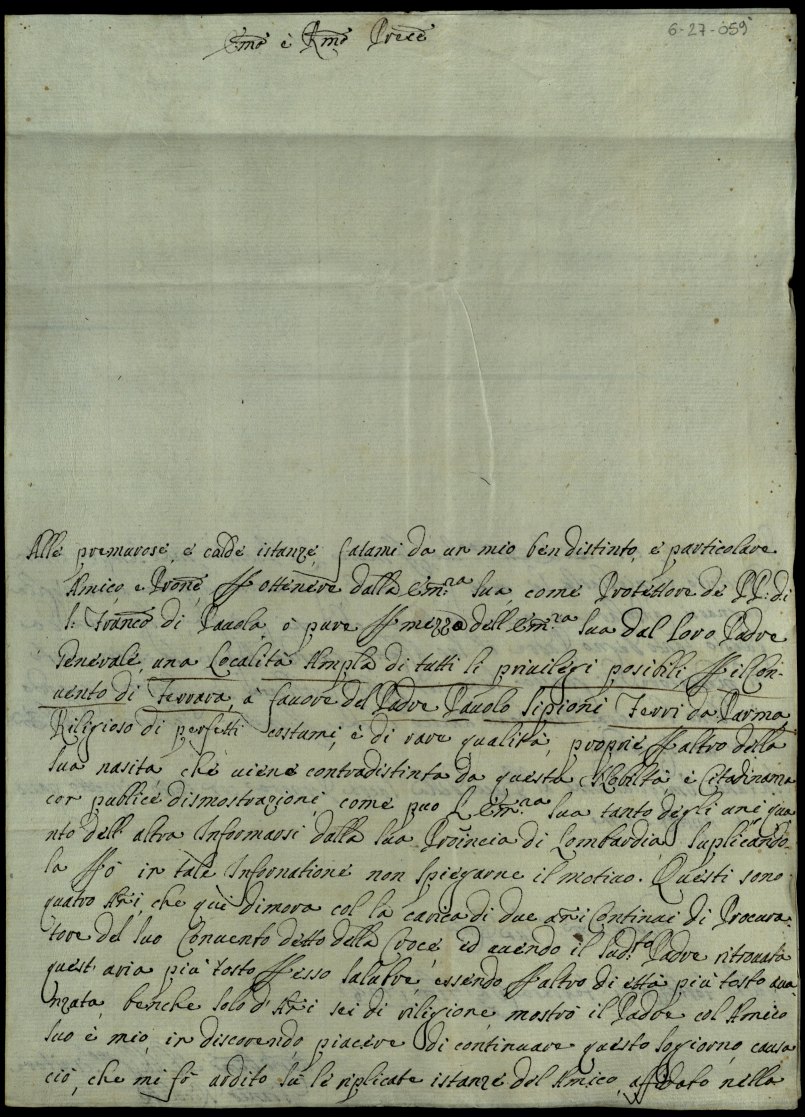 6-27-059
Emo è Rmo Prnē
Allé premurose, e caldé istanze, fatami da un mio ben distinto, e particolare
Amico e Pronē, ꝑ ottenere dalla Em:ra sua come Protettore de PP: di
S: Francō di Pauola, ò pure ꝑ mezzo dell' Em:ra sua dal Loro Padre
Generalé, una Località Ampla di tutti li priuilegi posibili, ꝑ il Con-
uento di Ferrara, à fauore del Padre Pauolo Sipioni Ferri da Parma
Riligioso di perfetti costumi, è di rare qualità, proprié ꝑ altro della
sua nasita, ché uiené contradistinta da questa Nobiltà, è Citadinama
cor publicé dismostrazioni, come puo L' Em:ra sua tanto degli uni qua
nto dell' altra Informarsi dalla sua Prouincia di Lombardia, suplicando
la ꝑò in tale Informatione non spiegarne il motiuo. Questi sono
quatro Ani che quì dimora col la carica di due ani Continui di Procura-
tore del suo Conuento detto della Crocé, ed auendo il sud:to Padre ritrouata
quest' aria più tosto ꝑ esso salubré, essendo ꝑ altro di età più tosto aua
nzata, benche solo d' Ani sei di riligione mostrò il Padre col Amico
suo è mio, in discorendo, piacere di continuare questo sogiorno, causa
ciò, che mi fò ardito sù lé riplicate istanzé del Amico, affidato nella